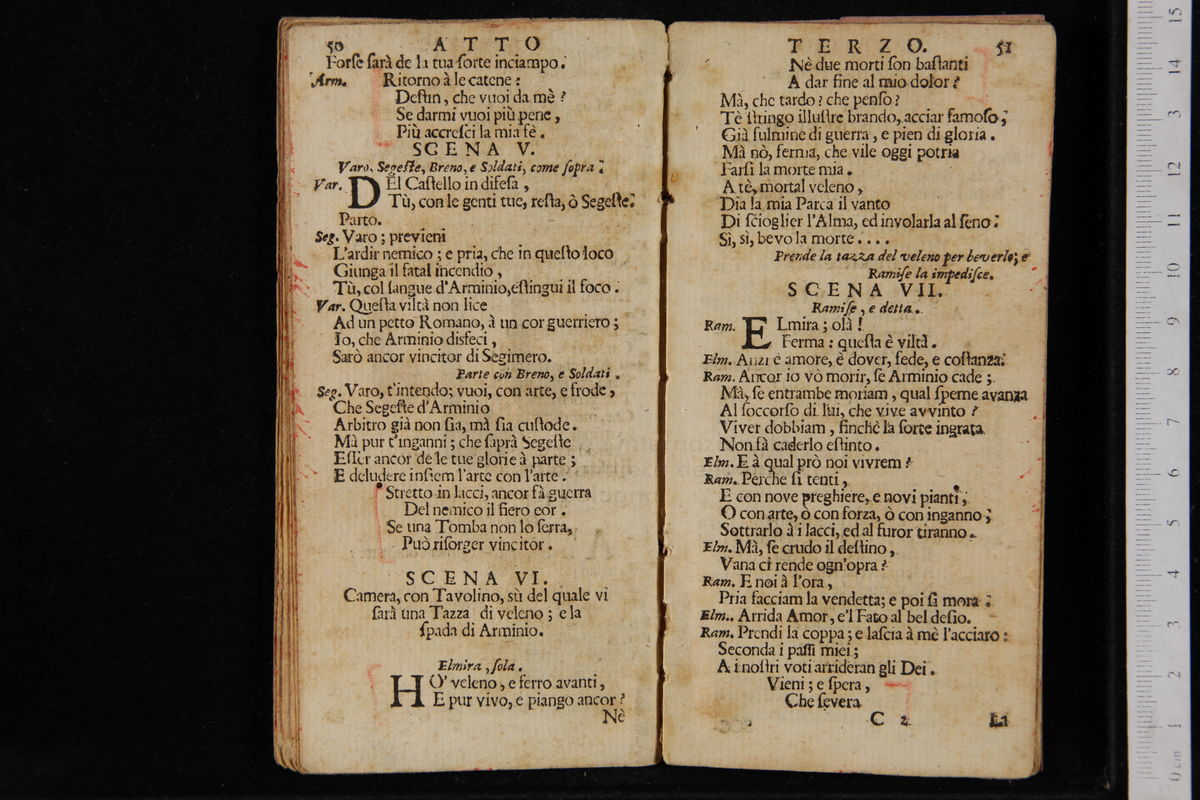 50 ATTO
Forse sarà de la tua sorte inciampo.
Arm. Ritorno à le catene:
Destin, che vuoi da mè?
Se darmi vuoi più pene,
Più accresci la mia fè.
SCENA V.
Varo, Segeste, Breno, e Soldati, come sopra.
Var. DEl Castello in difesa,
Tù, con le genti tue, resta, ò Segeste.
Parto.
Seg. Varo; previeni
L'ardir nemico; e pria, che in questo loco
Giunga il fatal incendio,
Tù, col sangue d'Arminio, estingui il foco.
Var. Questa viltà non lice
Ad un petto Romano, à un cor guerriero;
Io, che Arminio disfeci,
Sarò ancor vincitor di Segimero.
Parte con Breno, e Soldati.
Seg. Varo, t'intendo; vuoi, con arte, e frode,
Che Segeste d'Arminio
Arbitro già non sia, mà sia custode.
Mà pur t'inganni; che saprà Segeste
Esser ancor de le tue glorie à parte;
E deludere insiem l'arte con l'arte.
Stretto in lacci, ancor fà guerra
Del nemico il fiero cor.
Se una Tomba non lo serra,
Può risorger vincitor.
SCENA VI.
Camera, con Tavolino, sù del quale vi
sarà una Tazza di veleno; e la
spada di Arminio.
Elmira, sola.
HO' veleno, e ferro avanti,
E pur vivo, e piango ancor?
Nè
TERZO. 51
Nè due morti son bastanti
A dar fine al mio dolor?
Mà, che tardo? che penso?
Tè stringo illustre brando, acciar famoso,
Già fulmine di guerra, e pien di gloria.
Mà nò, ferma, che vile oggi potria
Farsi la morte mia.
A tè, mortal veleno,
Dia la mia Parca il vanto
Di scioglier l'Alma, ed involarla al seno:
Sì, sì, bevo la morte....
Prende la tazza del veleno per beverlo; e
Ramise la impedisce.
SCENA VII.
Ramise, e detta.
Ram. ELmira; olà!
Ferma: questa è viltà.
Elm. Anzi è amore, è dover, fede, e costanza.
Ram. Ancor io vò morir, se Arminio cade;
Mà, se entrambe moriam, qual speme avanza
Al soccorso di lui, che vive avvinto?
Viver dobbiam, finchè la sorte ingrata
Non fà caderlo estinto.
Elm. E à qual prò noi vivrem?
Ram. Perche si tenti,
E con nove preghiere, e novi pianti,
O con arte, ò con forza, ò con inganno;
Sottrarlo à i lacci, ed al furor tiranno.
Elm. Mà, se crudo il destino,
Vana ci rende ogn'opra?
Ram. E noi à l'ora,
Pria facciam la vendetta; e poi si mora.
Elm. Arrida Amor, e'l Fato al bel desio.
Ram. Prendi la coppa; e lascia à mè l'acciaro:
Seconda i passi miei;
A i nostri voti arrideran gli Dei.
Vieni; e spera,
Che severa
C 2 La
0 cm 1 2 3 4 5 6 7 8 9 10 11 12 13 14 15